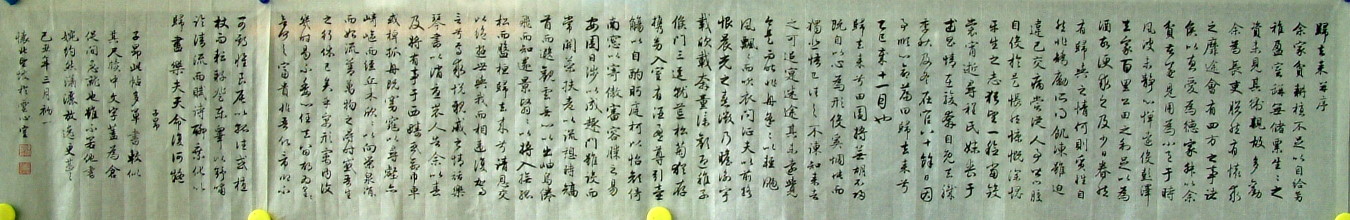 歸去來兮序
余家貧耕植不足以自給幼
稚盈室缾無儲粟生生之
資未見其術親故多勸
余為長吏脫然有懷求
之靡途會有四方之事諸
侯以惠愛為德家叔以余
貧苦遂見用為小邑于時
風波未靜心憚遠役彭澤
去家百里公田之利足以為
酒故便求之及少日眷然
有歸歟之情何則質性自
然非矯勵所得飢凍雖切
違己交病嘗從人事皆口腹
自役於是悵然慷慨深愧
平生之志猶望一稔當斂
裳宵逝尋程氏妹喪于
武昌情在駿奔自免去職
仲秋至冬在官八十餘日因
事順心命篇曰歸去來兮
乙巳歲十一月也
歸去來兮田園將蕪胡不歸
既自以心為形役奚惆悵而
獨悲悟已往之不諫知來者
之可追實迷途其未遠覺
今是而昨非舟遙遙以輕颺
風飄飄而吹衣問征夫以前路
恨晨光之熹微乃瞻衡宇
載欣載奔童僕歡迎稚子
候門三逕就荒松菊猶存
攜幼入室有酒盈樽引壺
觴以自酌眄庭柯以怡顏倚
南窗以寄傲審容膝之易
安園日涉以成趣門雖設而
常關策扶老以流憩時矯
首而遐觀雲無心以出岫鳥倦
飛而知還景翳翳以將入撫孤
松而盤桓歸去來兮請息交
以絕遊世與我而相違復駕
言兮焉求悅親戚之情話樂
琴書以消憂農人告余以春
及將有事于西疇或命巾車
或棹孤舟既窈窕以尋壑亦
崎嶇而經丘木欣欣以向榮泉涓
涓而始流善萬物之得時感吾生
之行休已矣乎寓形宇內復
幾時曷不委心任去留胡為
遑遑欲何之富貴非吾願帝鄉不
可期懷良辰以孤往或植
杖而耘耔登東皋以舒嘯
臨清流而賦詩聊乘化以
歸盡樂夫天命復何疑
子昂
子昂此帖多草書數似
其尺牘中文字蓋為倉
促間就也雖不若他書
婉約然瀟灑放逸更甚之
己丑年三月初一
懷北於雲心堂